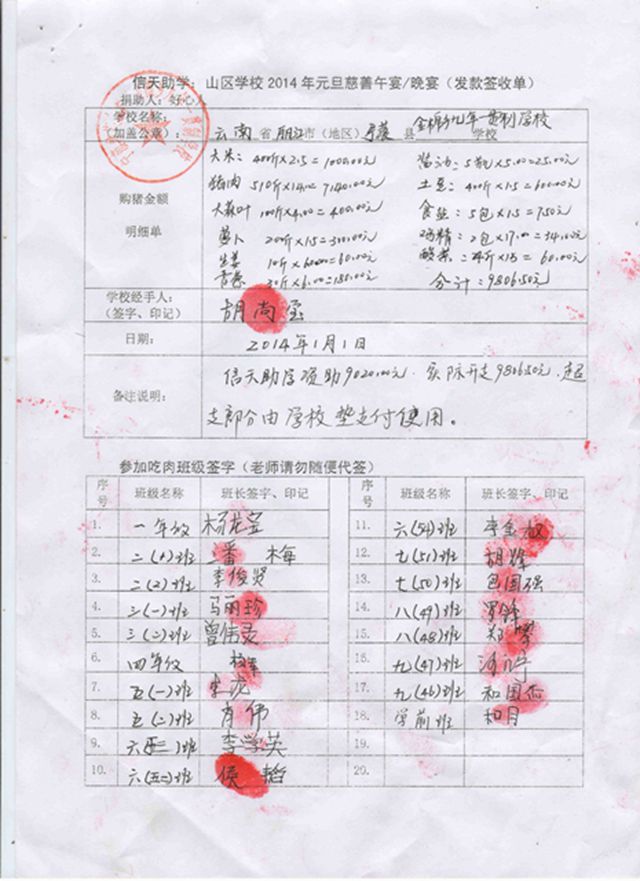 信天助学：山区学校2014年元旦慈善午宴/晚宴（发款签收单）
捐助人：好心人
学校名称：
（加盖公章）：
云南省丽江市（地区）宁蒗县 金棉乡九年一贯制学校 学校
购猪金额
明细单
大米：400斤×2.5=1000.00元
酱油：5瓶×5.00=25.00元
猪肉 510斤×14.00=7140.00元
土豆：400斤×1.5=600.00元
大蒜叶 100斤×4.00=400.00元
食盐：5包×1.5=7.50元
萝卜 200斤×1.5=300.00元
鸡精：2包×17.00=34.00元
生姜 10斤×6.00=60.00元
酸菜 =60.00元
30斤×6.00=180.00元
合计：9806.50元
学校经手人：
（签字、印记）
胡尚宝
日期：
2014年1月1日
备注说明：
信天助学资助9020.00元．实际开支9806.50元．超
支部分由学校垫支付使用。
参加吃肉班级签字（老师请勿随便代签）
序号 班级名称 班长签字、印记 序号 班级名称 班长签字、印记
1. 一年级 杨龙宝
11. 六(54)班 李金
2. 二(一)班 潘梅
12. 七(51)班 胡烽
3. 二(2)班 李俊贤
13. 七(50)班 包国强
4. 三(一)班 马丽珍
14. 八(49)班 罗锋
5. 三(二)班 曾伟灵
15. 八(48)班 郑
6. 四年级
16. 九(47)班
7. 五(一)班 李龙
17. 九(46)班 和国杰
8. 五(二)班 肖伟
18. 学前班 和月
9. 六 班 李学英
19.
10. 六(五二)班 侯韬
20.